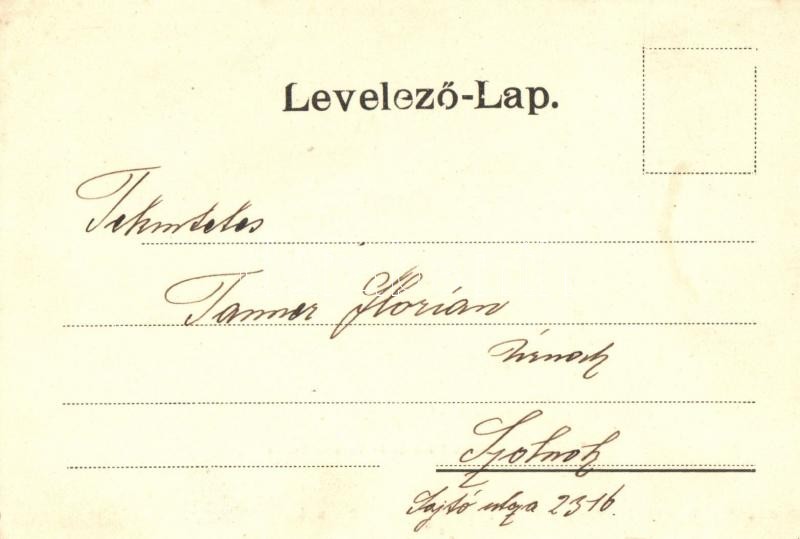 Levelező-Lap.
Tekintetes
Tanner Florian
úrnak
Szolnok
Sajtó utcza 2316.